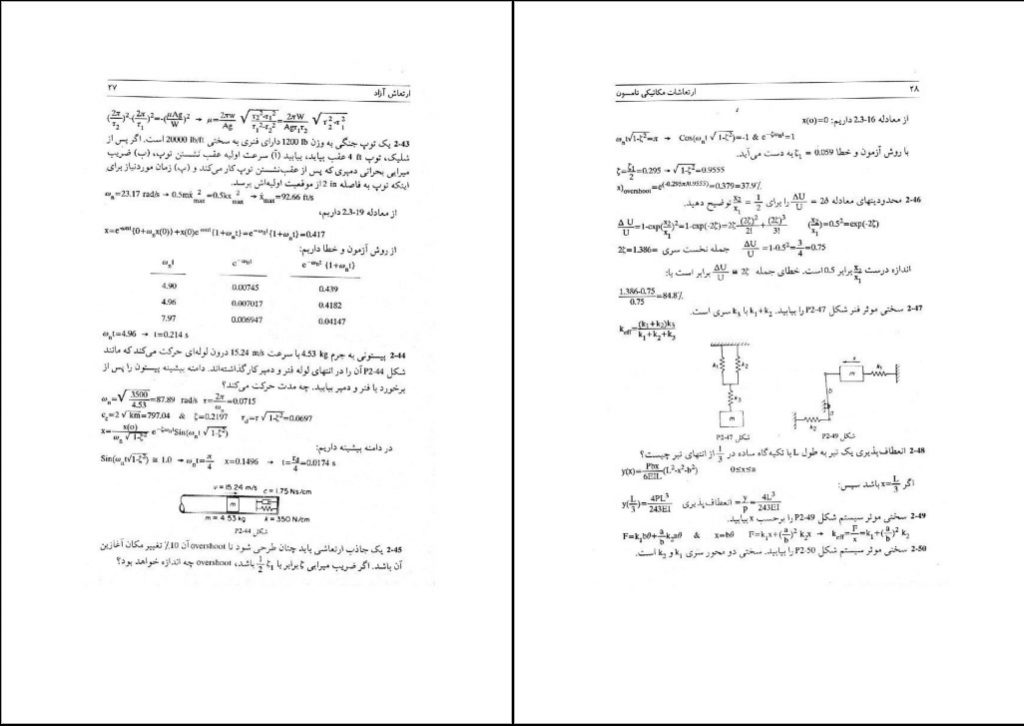 ۲۷
ارتعاش آزاد
(2π/τ₂)²-(2π/τ₁)²=-(μAg/W)² → μ=2πw/Ag √(τ₂²-τ₁²/τ₁²-τ₂²)=2πW/Agτ₁τ₂ √τ₂²-τ₁²
2-43 یک توپ جنگی به وزن 1200 lb دارای فنری به سختی 20000 lb/ft است. اگر پس از
شلیک، توپ 4 ft عقب بیاید، بیابید (آ) سرعت اولیه عقب نشستن توپ، (ب) ضریب
میرایی بحرانی دمپری که پس از عقب‌نشستن توپ کار می‌کند و (پ) زمان موردنیاز برای
اینکه توپ به فاصله 2 in از موقعیت اولیه‌اش برسد.
ωₙ=23.17 rad/s → 0.5mẋ²max =0.5kx²max → ẋmax =92.66 ft/s
از معادله 2.3-19 داریم،
x=e^-ωnt{0+ωₙx(0)}+x(0)e^-ωnt{1+ωₙt}=e^-ωnt{1+ωₙt}=0.417
از روش آزمون و خطا داریم:
ωₙt e^-ωnt e^-ωnt {1+ωₙt}
4.90 0.00745 0.439
4.96 0.007017 0.4182
7.97 0.006947 0.04147
ωₙt=4.96 → t=0.214 s
2-44 پیستونی به جرم 4.53 kg با سرعت 15.24 m/s درون لوله‌ای حرکت می‌کند که مانند
شکل P2-44 آن را در انتهای لوله فنر و دمپر کارگذاشته‌اند. دامنه بیشینه پیستون را پس از
برخورد با فنر و دمپر بیابید. چه مدت حرکت می‌کند؟
ωₙ=√3500/4.53=87.89 rad/s τ=2π/ωₙ=0.0715
cc=2 √km=797.04 & ζ=0.2197 τd=τ √1-ζ²=0.0697
x=ẋ(o)/ωₙ √1-ζ² e^-ζωnt Sin(ωₙt √1-ζ²)
در دامنه بیشینه داریم:
Sin(ωₙt√1-ζ²) ≅ 1.0 → ωₙt=π/4 x=0.1496 → t=τd/4=0.0174 s
v = 15.24 m/s c = 1.75 Ns/cm
m
m = 4.53 kg k = 350 N/cm
شکل P2-44
2-45 یک جاذب ارتعاشی باید چنان طرحی شود تا overshoot آن 10٪ تغییر مکان آغازین
آن باشد. اگر ضریب میرایی ζ برابر با 1/2 ζ₁ باشد، overshoot چه اندازه خواهد بود؟
۲۸
ارتعاشات مکانیکی تامسون
از معادله 2.3-16 داریم: x(o)=0
ωₙt√1-ζ²=π → Cos(ωₙt √1-ζ²)=-1 & e^-ζωnt=1
با روش آزمون و خطا 0.059 = ζ₁ به دست می‌آید.
ζ=ζ₁/2=0.295 → √1-ζ²=0.9555
x)overshoot=e^(-0.295π/0.9555)=0.379=37.9٪
2-46 محدودیتهای معادله ΔU/U = 2δ را برای x₂/x₁ = 1/2 توضیح دهید.
ΔU/U=1-exp(x₂/x₁)²=1-exp(-2ζ)=2ζ-(2ζ)²/2!+(2ζ)³/3! (x₂/x₁)=0.5²=exp(-2ζ)
2ζ=1.386= جمله نخست سری ΔU/U=1-0.5²=3/4=0.75
اندازه درست x₂/x₁ برابر 0.5 است. خطای جمله ΔU/U ≅ 2ζ برابر است با:
1.386-0.75/0.75=84.8٪
2-47 سختی موثر فنر شکل P2-47 را بیابید. k₁+k₂ با k₃ سری است.
keff=(k₁+k₂)k₃/k₁+k₂+k₃
k₁ k₂
k₃
m
شکل P2-47
x
m k₁
a
b
k₂
شکل P2-49
2-48 انعطاف‌پذیری یک تیر به طول L با تکیه‌گاه ساده در 1/3 از انتهای تیر چیست؟
y(x)=Pbx/6EIL(L²-x²-b²) 0≤x≤a
اگر x=L/3 باشد سپس:
y(L/3)=4PL³/243EI انعطاف‌پذیری =y/p=4L³/243EI
2-49 سختی موثر سیستم شکل P2-49 را برحسب x بیابید.
F=k₁bθ+a/b k₂aθ & x=bθ F=k₁x+(a/b)² k₂x → keff=F/x=k₁+(a/b)² k₂
2-50 سختی موثر سیستم شکل P2-50 را بیابید. سختی دو محور سری k₁ و k₂ است.